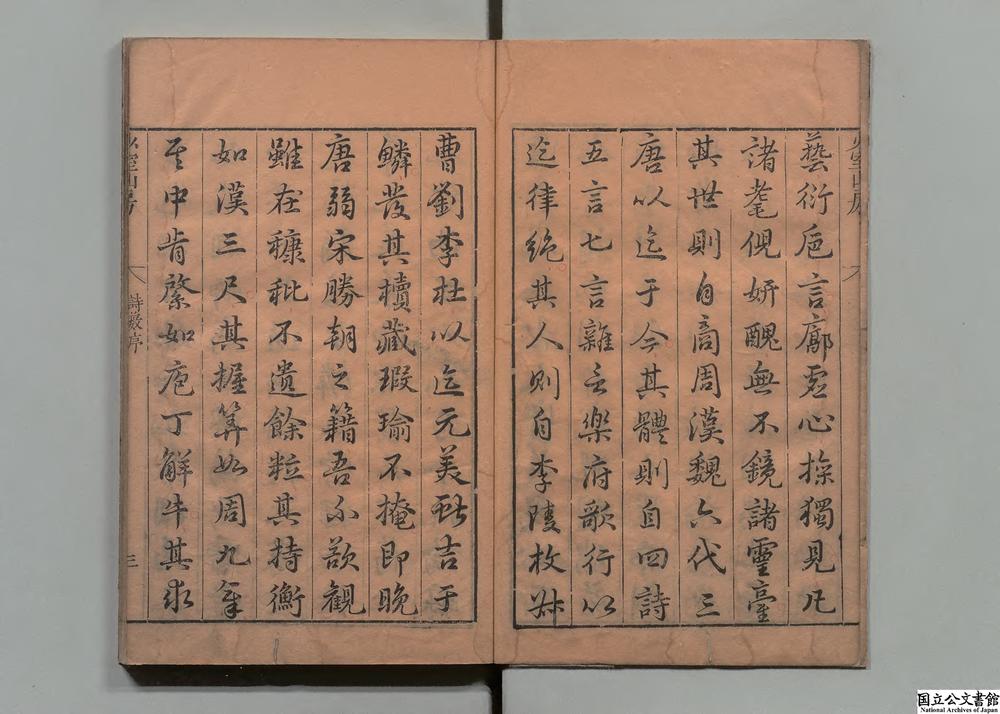 少室山房
藝衍巵言廓虛心採獨見凡
諸耄倪妍醜無不鏡諸靈臺
其世則自商周漢魏六代三
唐以迄于今其體則自四詩
五言七言雜言樂府歌行以
迄律絕其人則自李陵枚叔
曹劉李杜以迄元美獻吉于
鱗發其櫝藏瑕瑜不掩即晚
唐弱宋勝朝之籍吾不欲觀
雖在糠秕不遺餘粒其持衡
如漢三尺其握算如周九章
其中肯綮如庖丁解牛其求
少室山房 詩藪序 三
国立公文書館
National Archives of Japan